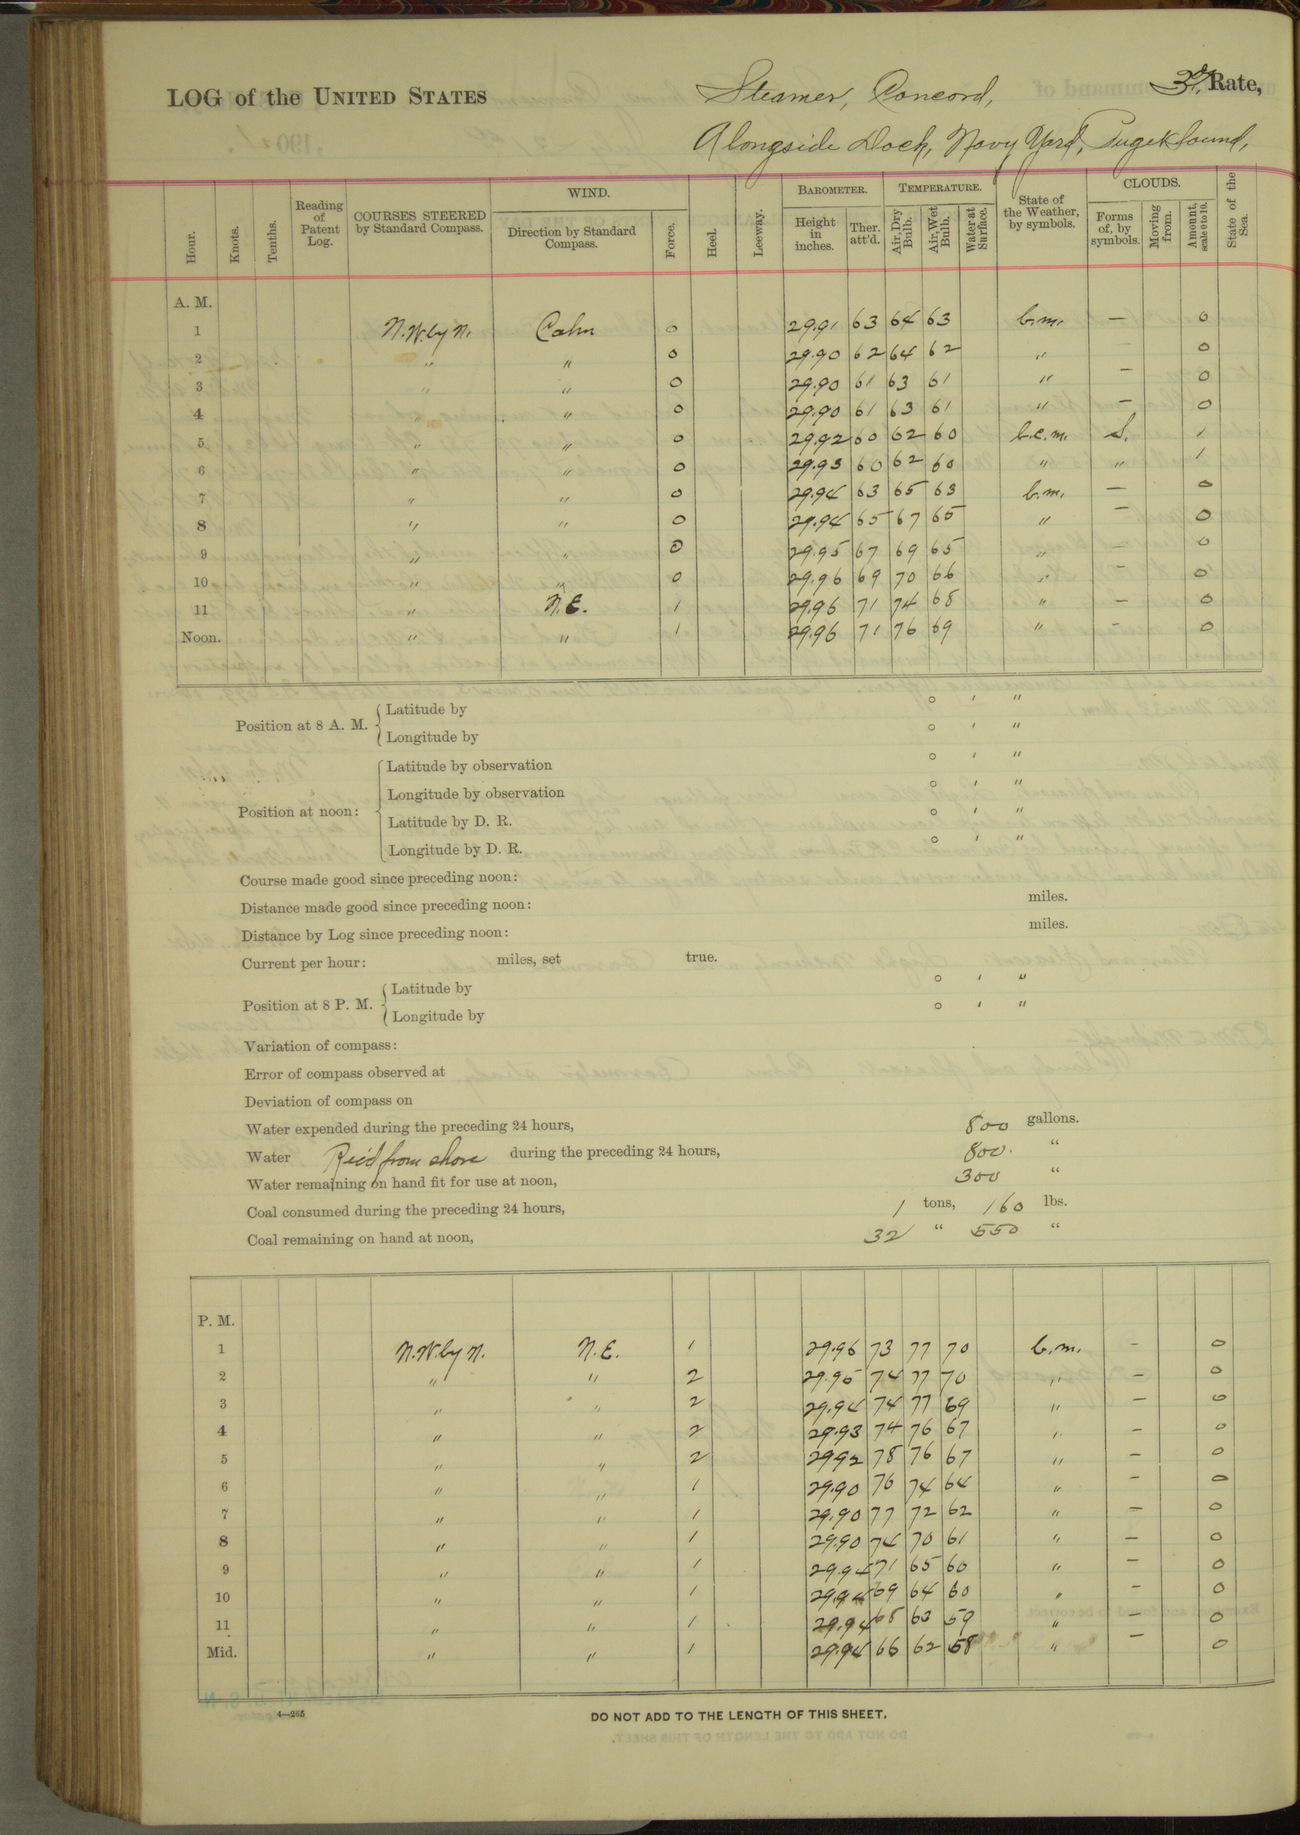 LOG of the UNITED STATES Steamer, Concord, 3d Rate,
Alongside Dock, Navy Yard, Puget Sound,
Hour. Knots. Tenths. Reading of Patent Log. COURSES STEERED by Standard Compass. WIND. Direction by Standard Compass. Force. Heel. Leeway. BAROMETER. Height in inches. Ther. att'd. TEMPERATURE. Air, Dry Bulb. Air, Wet Bulb. Water at Surface. State of the Weather, by symbols. CLOUDS. Forms of, by symbols. Moving from. Amount, scale 0 to 10. State of the Sea.
A. M.
1 N.W. by N. Calm 0 29.91 63 64 63 b.m. — 0
2 " " 0 29.90 62 64 62 " 0
3 " " 0 29.90 61 63 61 " — 0
4 " " 0 29.90 61 63 61 " — 0
5 " " 0 29.92 60 62 60 b.c.m. S. 1
6 " " 0 29.93 60 62 60 " " 1
7 " " 0 29.94 63 65 63 b.m. — 0
8 " " 0 29.94 65 67 65 " — 0
9 " " 0 29.95 67 69 65 " — 0
10 " " 0 29.96 69 70 66 " — 0
11 " N.E. 1 29.96 71 74 68 " — 0
Noon. " " 1 29.96 71 76 69 " — 0
Position at 8 A. M. { Latitude by ° ' "
Longitude by ° ' "
Position at noon: { Latitude by observation ° ' "
Longitude by observation ° ' "
Latitude by D. R. ° ' "
Longitude by D. R. ° ' "
Course made good since preceding noon:
Distance made good since preceding noon: miles.
Distance by Log since preceding noon: miles.
Current per hour: miles, set true.
Position at 8 P. M. { Latitude by ° ' "
Longitude by ° ' "
Variation of compass:
Error of compass observed at
Deviation of compass on
Water expended during the preceding 24 hours, 800 gallons.
Water Rec'd from shore during the preceding 24 hours, 800. "
Water remaining on hand fit for use at noon, 300 "
Coal consumed during the preceding 24 hours, 1 tons, 160 lbs.
Coal remaining on hand at noon, 32 " 550 "
P. M.
1 N.W. by N. N.E. 1 29.96 73 77 70 b.m. — 0
2 " " 2 29.95 74 77 70 " — 0
3 " " 2 29.94 74 77 69 " — 0
4 " " 2 29.93 74 76 67 " — 0
5 " " 2 29.92 78 76 67 " — 0
6 " " 1 29.90 76 74 64 " — 0
7 " " 1 29.90 77 72 62 " — 0
8 " " 1 29.90 74 70 61 " — 0
9 " " 1 29.94 71 65 60 " — 0
10 " " 1 29.94 69 64 60 " — 0
11 " " 1 29.94 68 63 59 " — 0
Mid. " " 1 29.94 66 62 58 " — 0
4—265
DO NOT ADD TO THE LENGTH OF THIS SHEET.